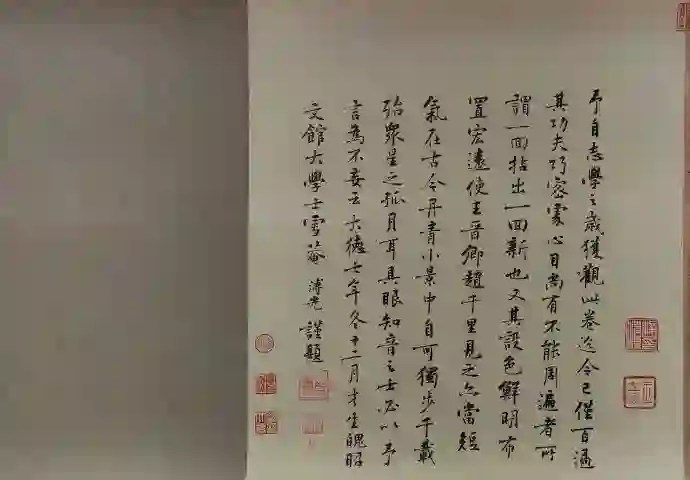 予自志學之歲獲觀此卷迄今已僅百過
其功夫巧密處心目尚有不能周遍者所
謂一回拈出一回新也又其設色鮮明布
置宏遠使王晉卿趙千里見之亦當短
氣在古今丹青小景中自可獨步千載
殆衆星之孤月耳具眼知音之士必以予
言爲不妄云大德七年冬十二月才生魄昭
文館大學士雪菴溥光謹題